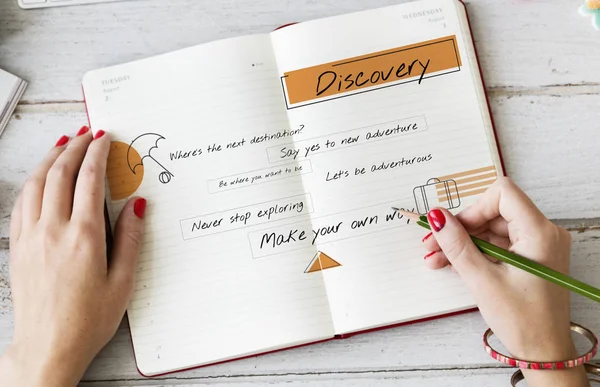 TUESDAY
August
WEDNESDAY
August
Discovery
Where's the next destination?
Say yes to new adventure
Be where you want to be
Let's be adventurous
Never stop exploring
Make your own way